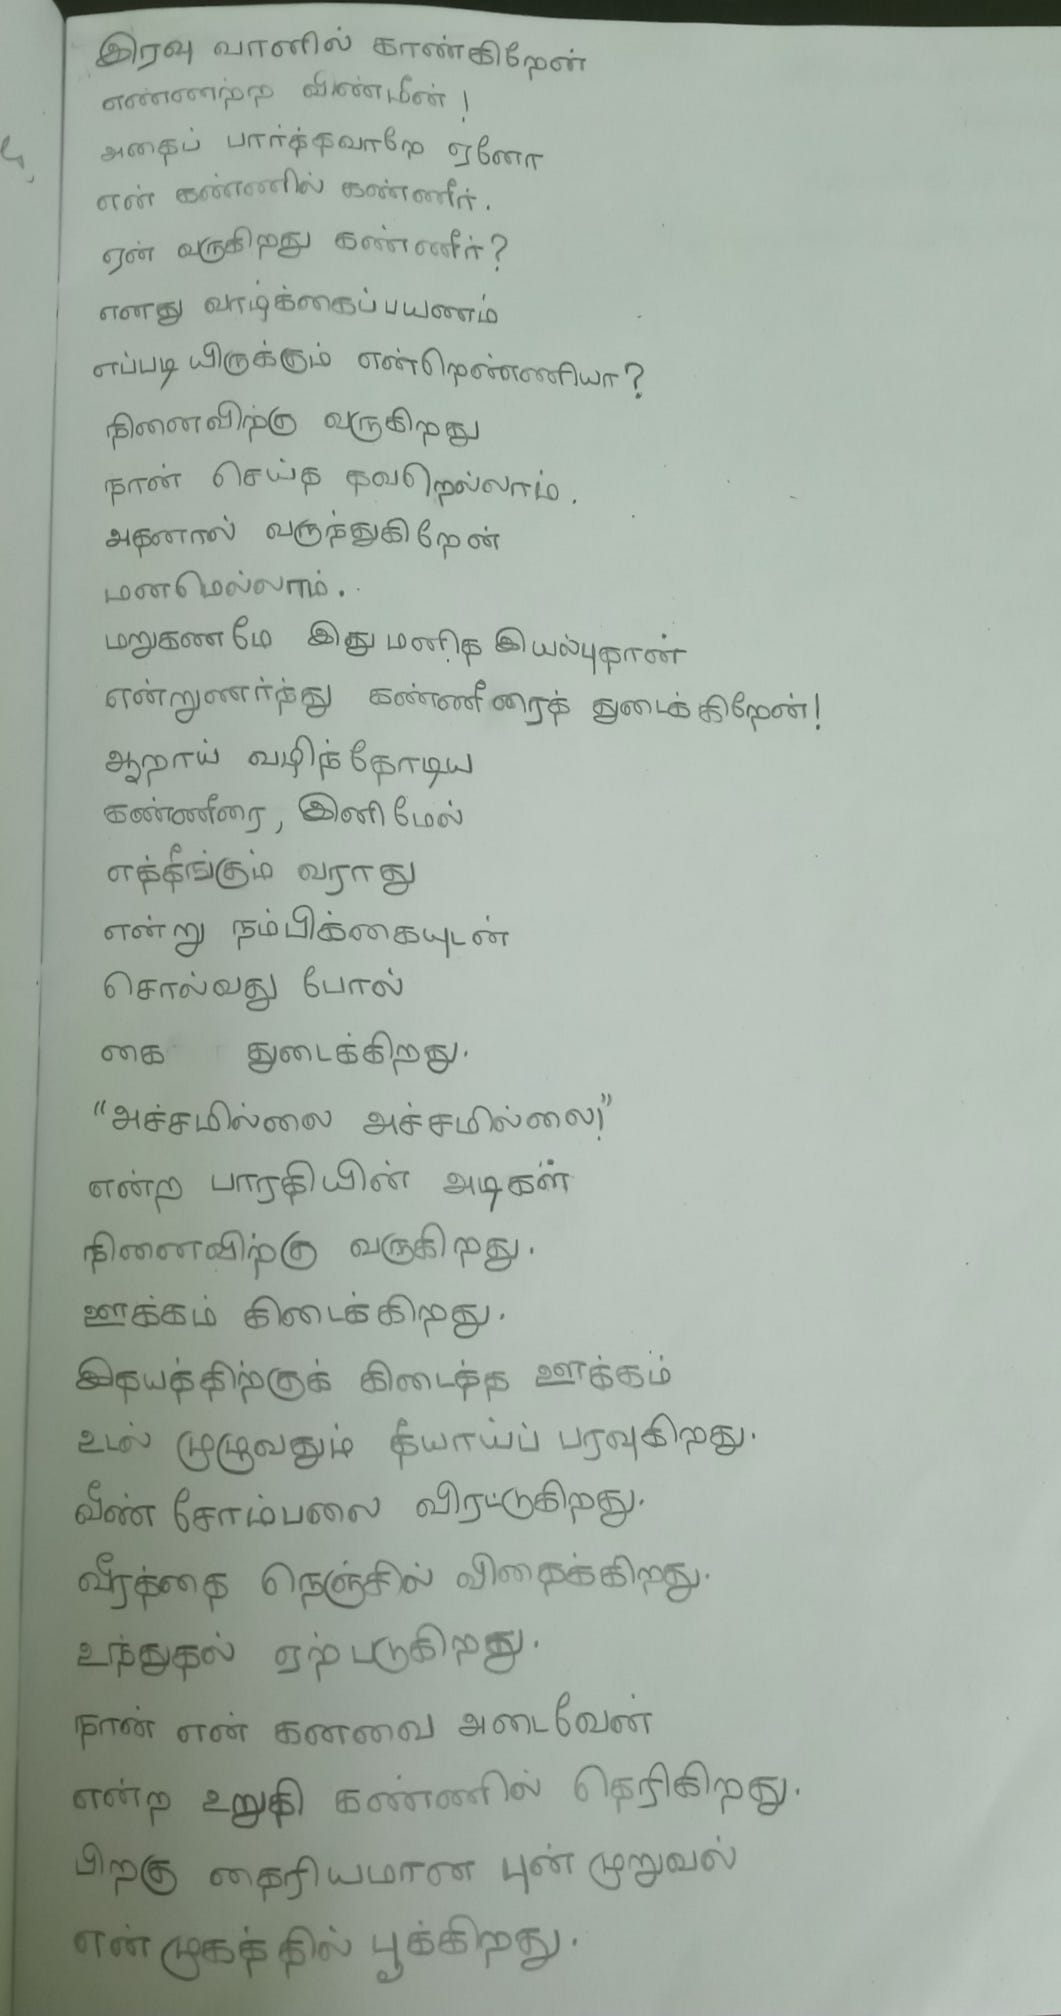 இரவு வானில் காண்கிறேன்
எண்ணற்ற விண்மீன்!
அதைப் பார்த்தவாறே ஏனோ
என் கண்ணில் கண்ணீர்.
ஏன் வருகிறது கண்ணீர்?
எனது வாழ்க்கைப்பயணம்
எப்படியிருக்கும் என்றெண்ணியா?
நினைவிற்கு வருகிறது
நான் செய்த தவறெல்லாம்.
அதனால் வருந்துகிறேன்
மனமெல்லாம்.
மறுகணமே இது மனித இயல்புதான்
என்றுணர்ந்து கண்ணீரைத் துடைக்கிறேன்!
ஆறாய் வழிந்தோடிய
கண்ணீரை, இனிமேல்
எத்தீங்கும் வராது
என்று நம்பிக்கையுடன்
சொல்வது போல்
கை துடைக்கிறது.
"அச்சமில்லை அச்சமில்லை!"
என்ற பாரதியின் அடிகள்
நினைவிற்கு வருகிறது.
ஊக்கம் கிடைக்கிறது.
இதயத்திற்குக் கிடைத்த ஊக்கம்
உடல் முழுவதும் தீயாய்ப் பரவுகிறது.
வீண் சோம்பலை விரட்டுகிறது.
வீரத்தை நெஞ்சில் விதைக்கிறது.
உந்துதல் ஏற்படுகிறது.
நான் என் கனவை அடைவேன்
என்ற உறுதி கண்ணில் தெரிகிறது.
பிறகு தைரியமான புன்முறுவல்
என் முகத்தில் பூக்கிறது.